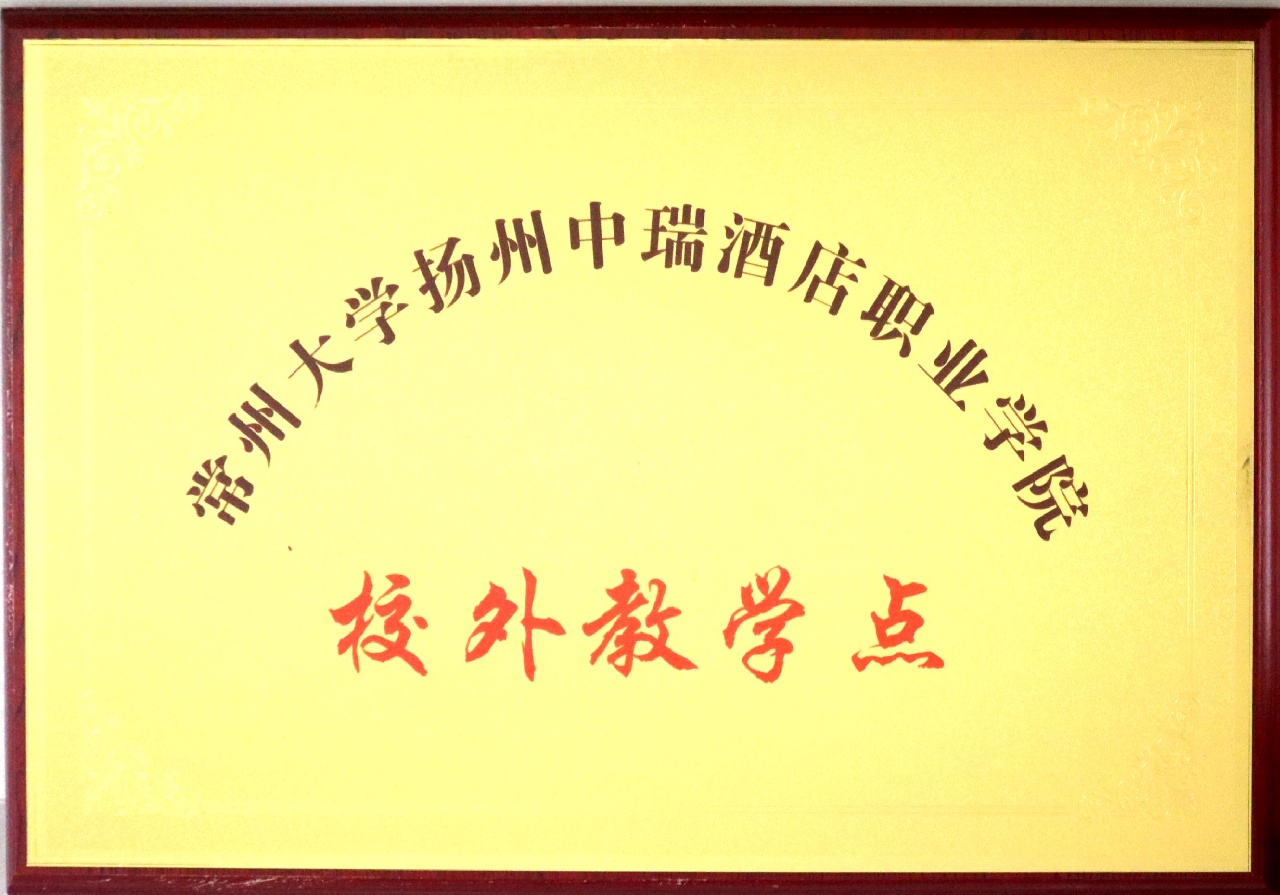 常州大学扬州中瑞酒店职业学院
校外教学点